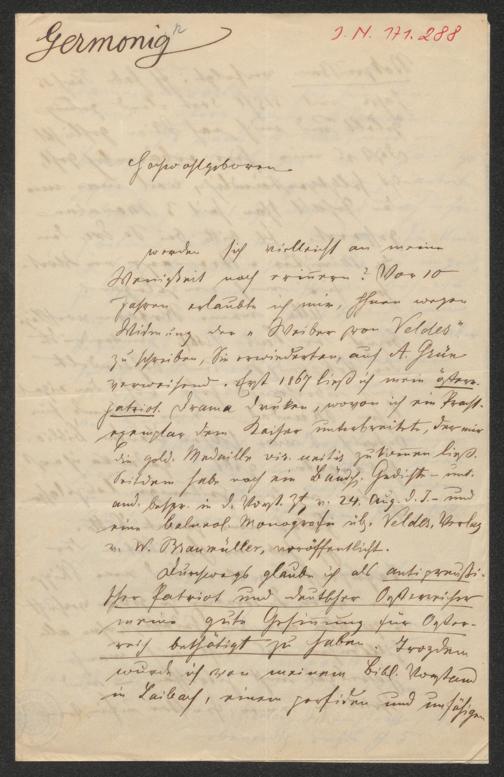 Germonig
J. N. 171.288
Hochwohlgeboren
werden sich vielleicht an meine
Wenigkeit noch erinnern? Vor 10
Jahren erlaubte ich mir, Ihnen wegen
Widmung der „Weiber von Veldes"
zu schreiben, Sie erwiederten, auf A. Grün
verweisend. Erst 1867 ließ ich mein österr.
patriot. Drama druken, wovon ich ein Pracht-
exemplar dem Kaiser unterbreitete, der mir
die gold. Medaille zukommen ließ.
Seitdem habe noch ein Bändch. Gedichte - unt.
and. bespr. in d. v. 24. Aug. d. J. - und
eine balneol. Monografie üb. Veldes, Verlag
v. W. Braumüller, veröffentlicht.
Durchwegs glaube ich als antipreußi-
scher Patriot und deutscher Oesterreicher
meine gute Gesinnung für Oester-
reich bethätigt zu haben. Trozdem
wurde ich von meinem Bibl. Vorstand
in Laibach, einem perfiden und unfähigen